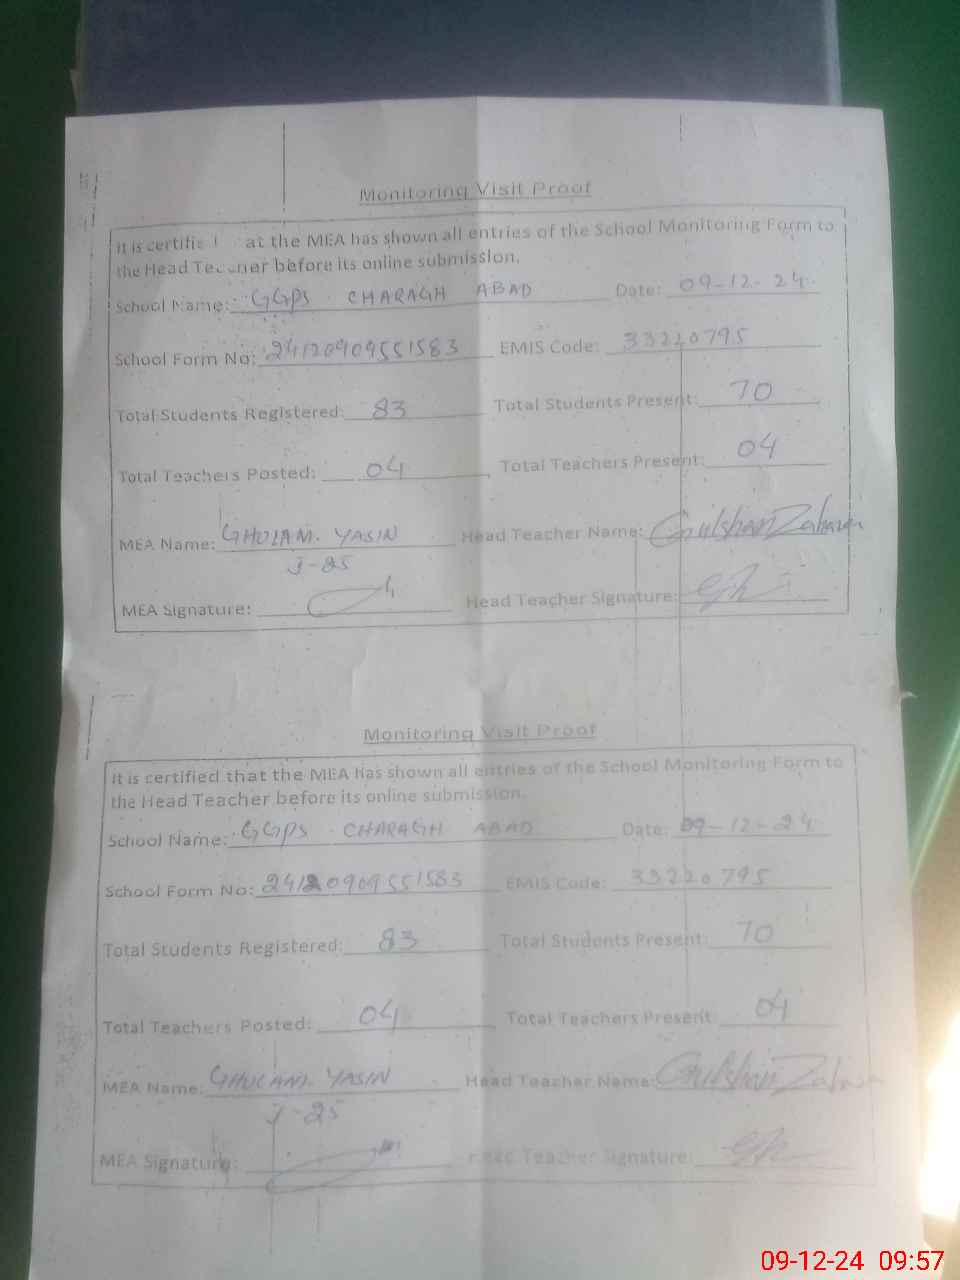 Monitoring Visit Proof
It is certified at the MEA has shown all entries of the School Monitoring Form to
the Head Teacher before its online submission.
School Name: GGPS CHARAGH ABAD Date: 09-12-24
School Form No: 24120909551583 EMIS Code: 33220795
Total Students Registered: 83 Total Students Present: 70
Total Teachers Posted: 04 Total Teachers Present: 04
MEA Name: GHULAM. YASIN Head Teacher Name: Gulshan Zahra
J-25
MEA Signature: Head Teacher Signature:
Monitoring Visit Proof
It is certified that the MEA has shown all entries of the School Monitoring Form to
the Head Teacher before its online submission.
School Name: GGPS CHARAGH ABAD Date: 09-12-24
School Form No: 24120909551583 EMIS Code: 33220795
Total Students Registered: 83 Total Students Present: 70
Total Teachers Posted: 04 Total Teachers Present: 04
MEA Name: GHULAM. YASIN Head Teacher Name: Gulshan Zahra
J-25
MEA Signature: Teacher Signature:
09-12-24 09:57